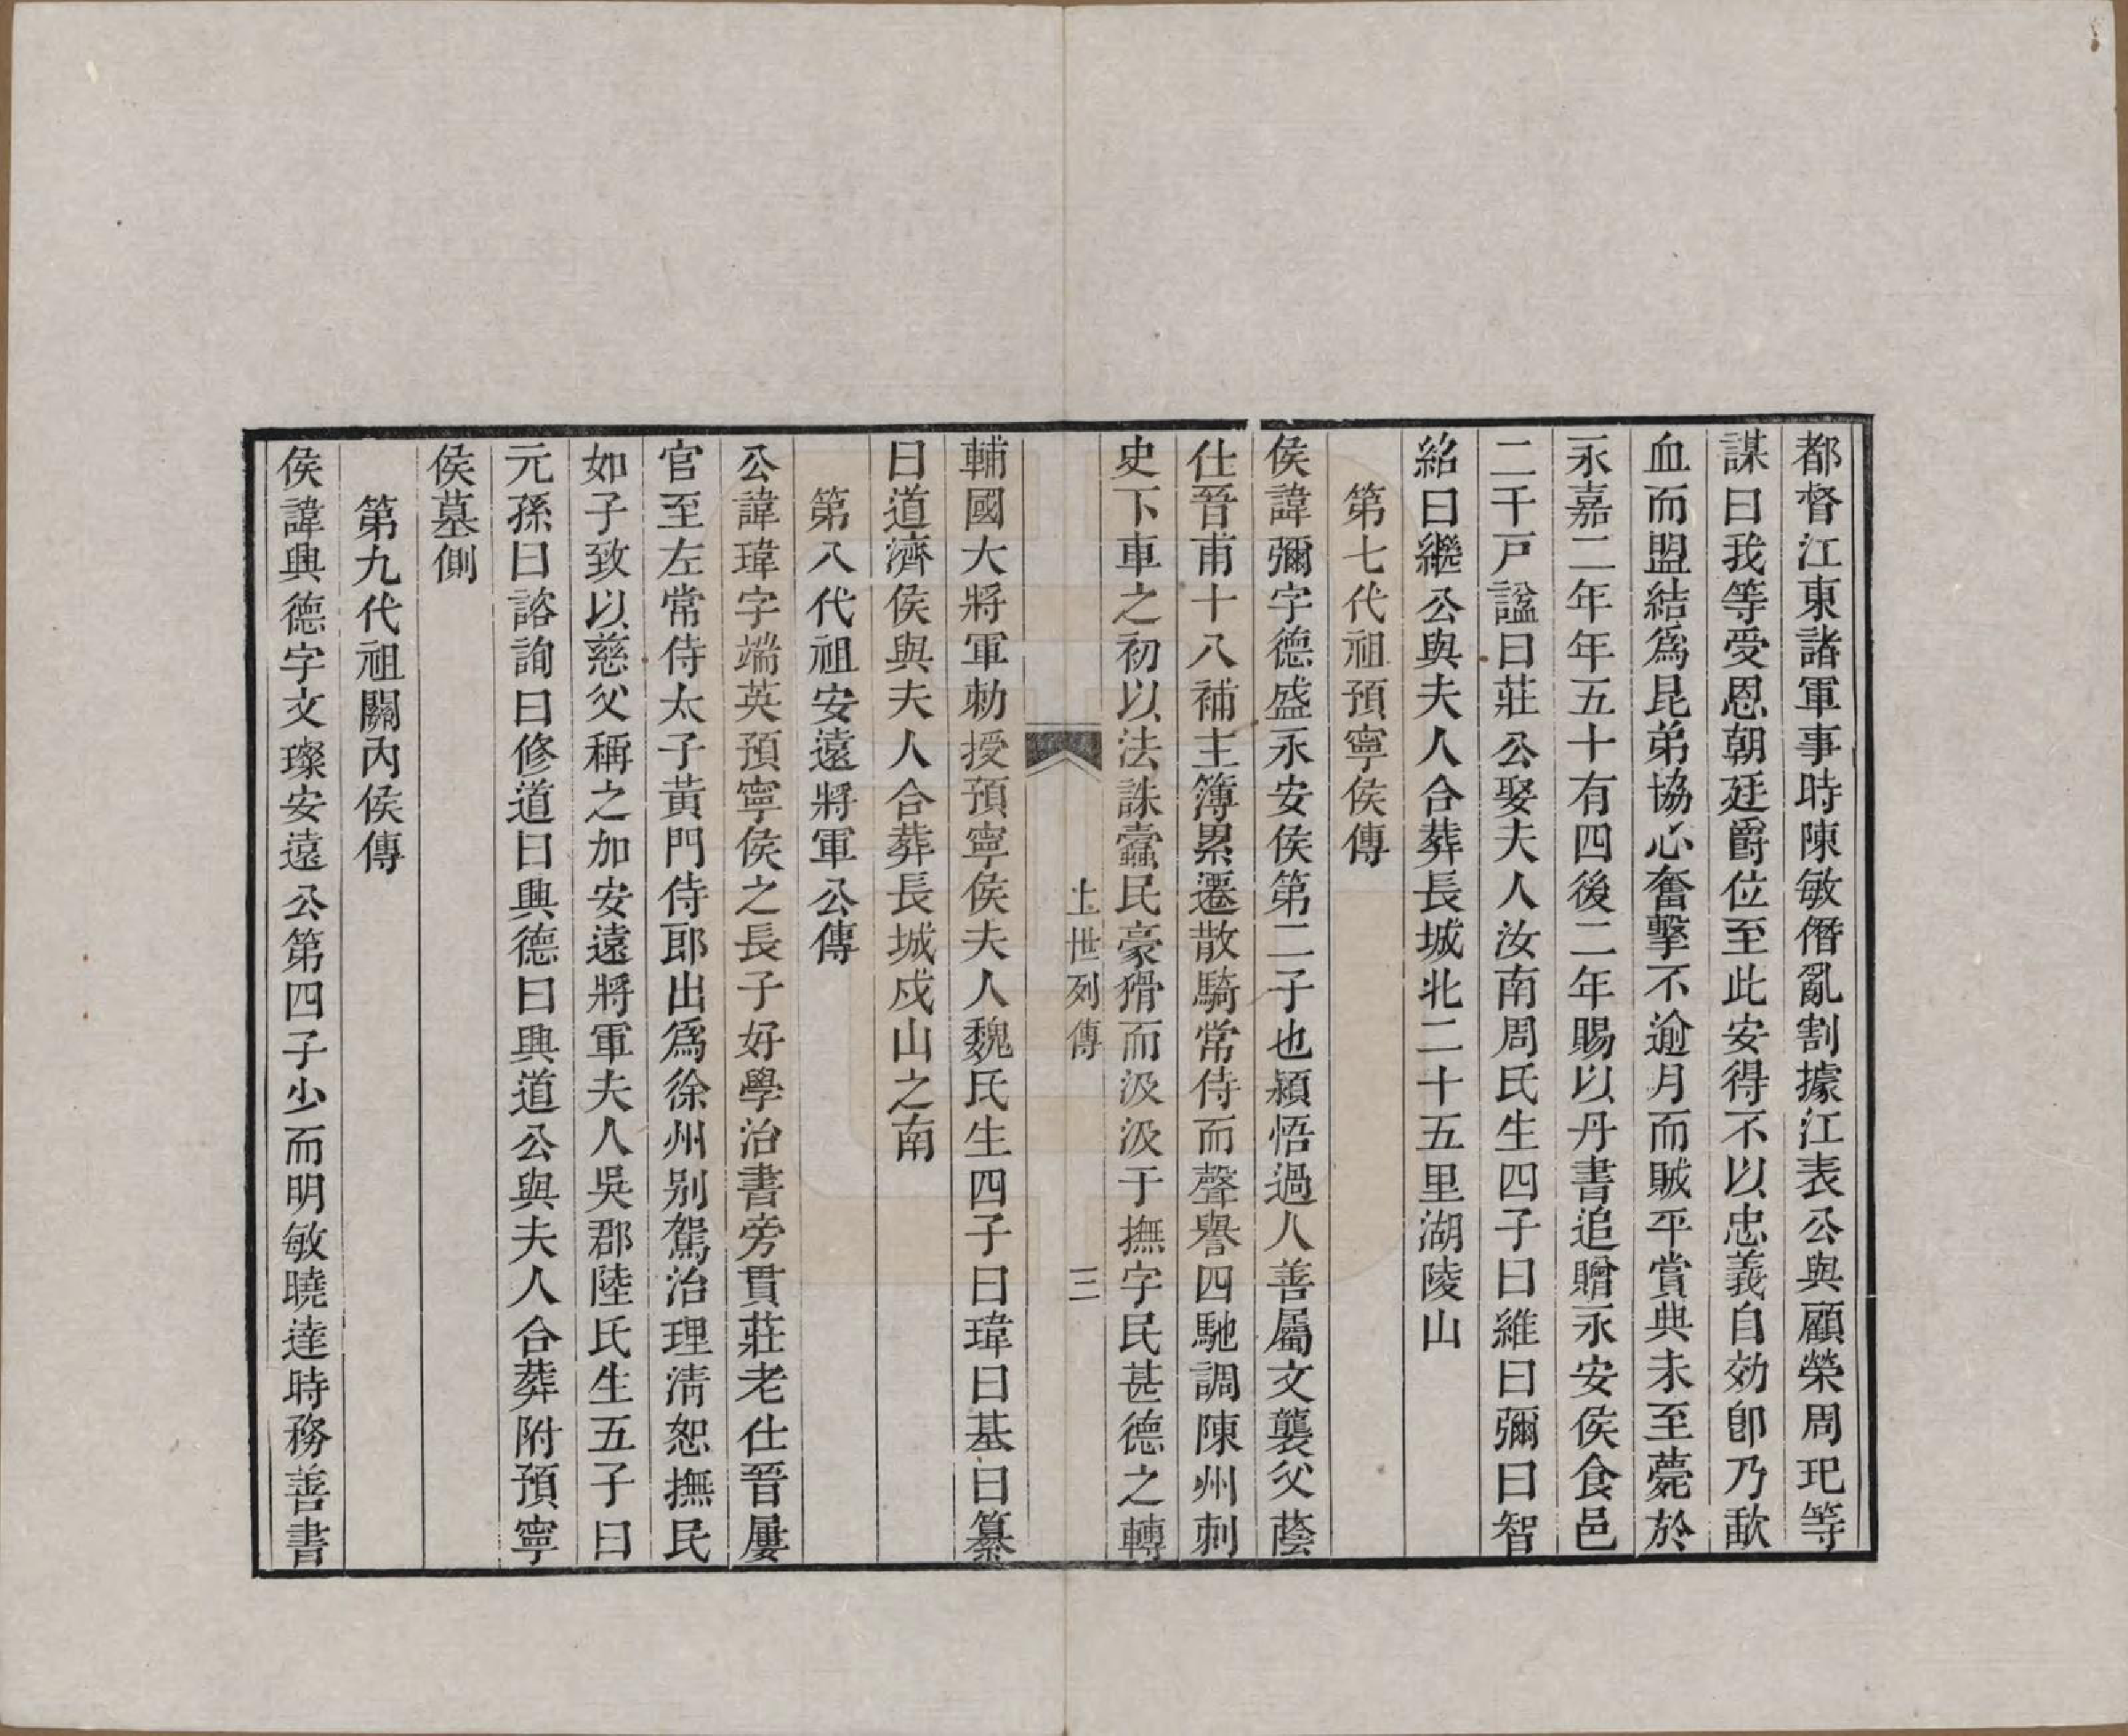 都督江東諸軍事時陳敏僭亂割據江表公與顧榮周玘等
謀曰我等受恩朝廷爵位至此安得不以忠義自効卽乃歃
血而盟結爲昆弟協心奮擊不逾月而賊平賞典未至薨於
永嘉二年年五十有四後二年賜以丹書追贈永安侯食邑
二千戸諡曰莊公娶夫人汝南周氏生四子曰維曰彌曰智
紹曰繼公與夫人合葬長城北二十五里湖陵山
第七代祖預寧侯傳
侯諱彌字德盛永安侯第二子也穎悟過人善屬文襲父蔭
仕晉甫十八補主簿累遷散騎常侍而聲譽四馳調陳州刺
史下車之初以法誅蠹民豪猾而汲汲于撫字民甚德之轉
上世列傳 三
輔國大將軍勅授預寧侯夫人魏氏生四子曰瑋曰基曰纂
曰道濟侯與夫人合葬長城戍山之南
第八代祖安遠將軍公傳
公諱瑋字端英預寧侯之長子好學治書旁貫莊老仕晉屢
官至左常侍太子黃門侍郎出爲徐州别駕治理淸恕撫民
如子致以慈父稱之加安遠將軍夫人吳郡陸氏生五子曰
元孫曰諮詢曰修道曰興德曰興道公與夫人合葬附預寧
侯墓側
第九代祖關內侯傳
侯諱興德字文璨安遠公第四子少而明敏曉達時務善書